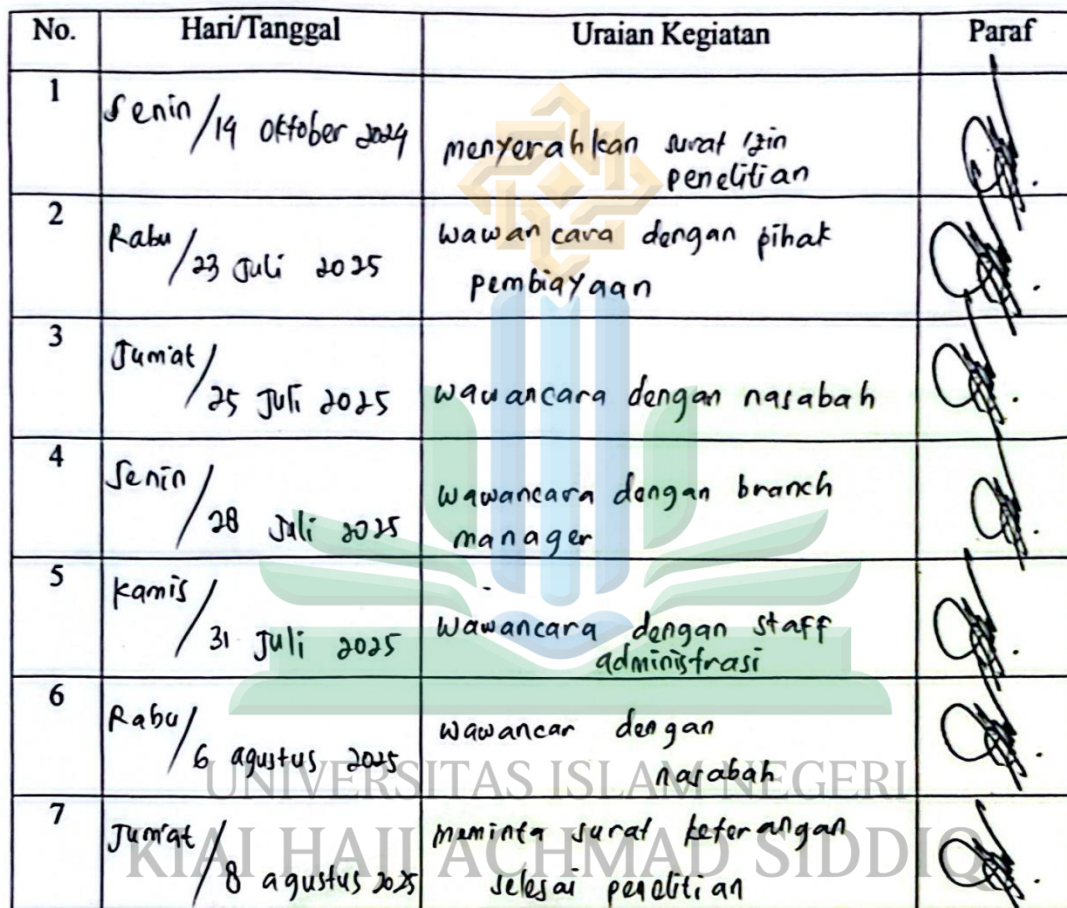 No. Hari/Tanggal Uraian Kegiatan Paraf
1 Senin / 14 Oktober 2024 menyerahkan surat izin
penelitian
2 Rabu / 23 Juli 2025 wawancara dengan pihak
pembiayaan
3 Jum'at / 25 Juli 2025 wawancara dengan nasabah
4 Senin / 28 Juli 2025 wawancara dengan branch
manager
5 Kamis / 31 Juli 2025 wawancara dengan staff
administrasi
6 Rabu / 6 agustus 2025 wawancar dengan
nasabah
7 Jum'at / 8 agustus 2025 meminta surat keterangan
selesai penelitian
UNIVERSITAS ISLAM NEGERI
KIAI HAJI ACHMAD SIDDIQ